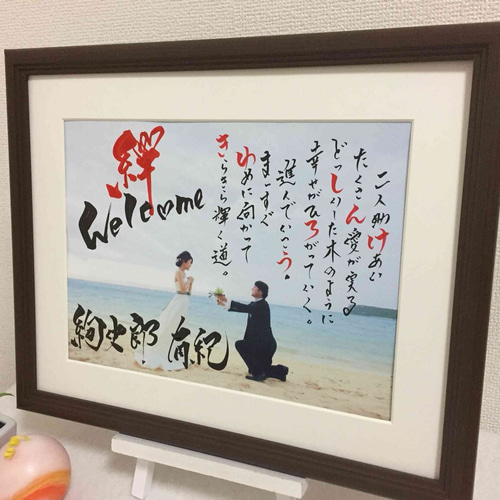 絆
Welcome
二人助けあい
たくさん愛が実る
どっしりした木のように
幸せがひろがっていく。
進んでいこう。
まっすぐ
ゆめに向かって
きらきら輝く道。
絢史郎 有紀